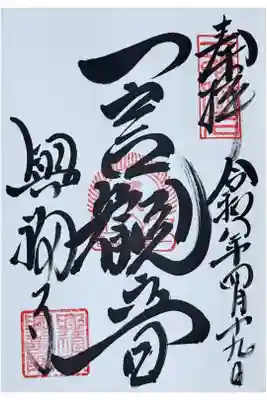 奉拝
令和 年四月十九日
一言観音
興福寺